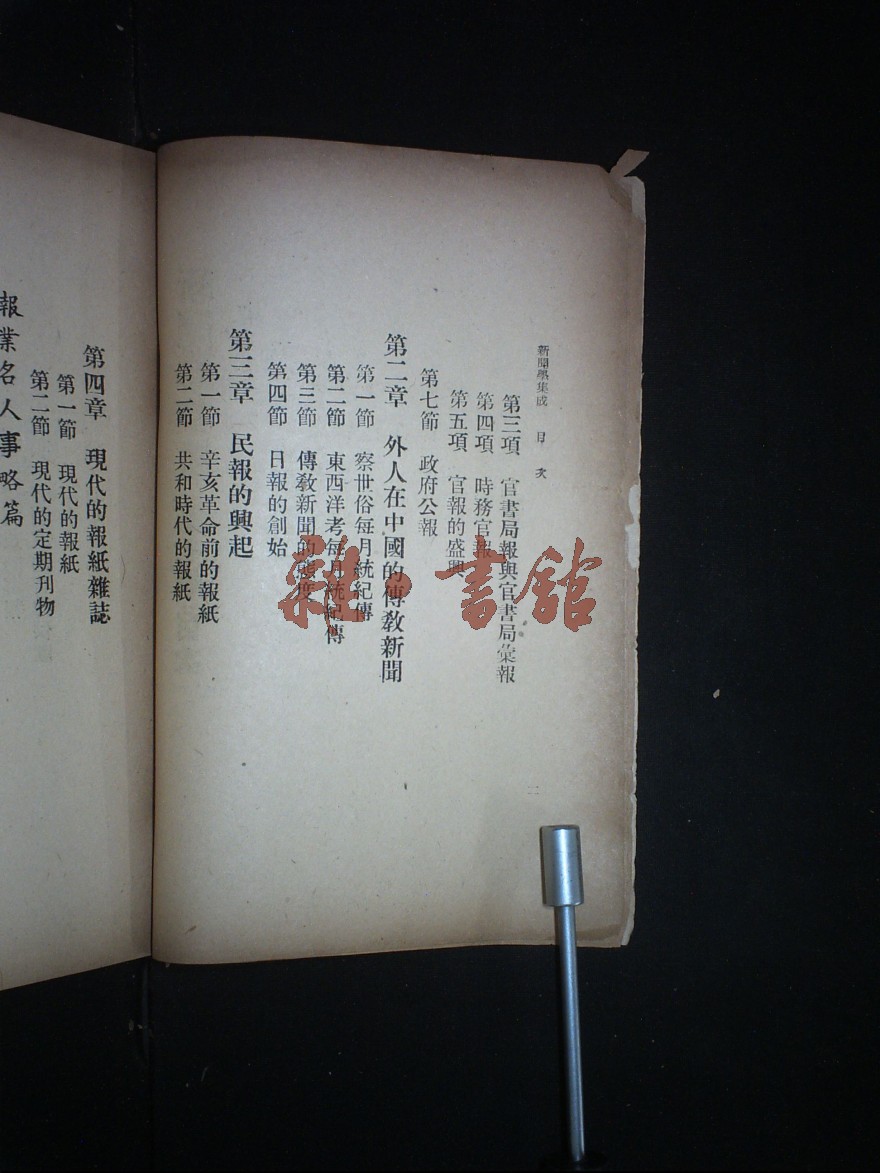 新聞學集成 目次
第三項 官書局報與官書局彙報
第四項 時務官報
第五項 官報的盛興
第七節 政府公報
第二章 外人在中國的傳敎新聞
第一節 察世俗每月統紀傳
第二節 東西洋考每月統紀傳
第三節 傳敎新聞的態度
第四節 日報的創始
第三章 民報的興起
第一節 辛亥革命前的報紙
第二節 共和時代的報紙
二
第四章 現代的報紙雜誌
第一節 現代的報紙
第二節 現代的定期刊物
報業名人事略篇
雜·書館